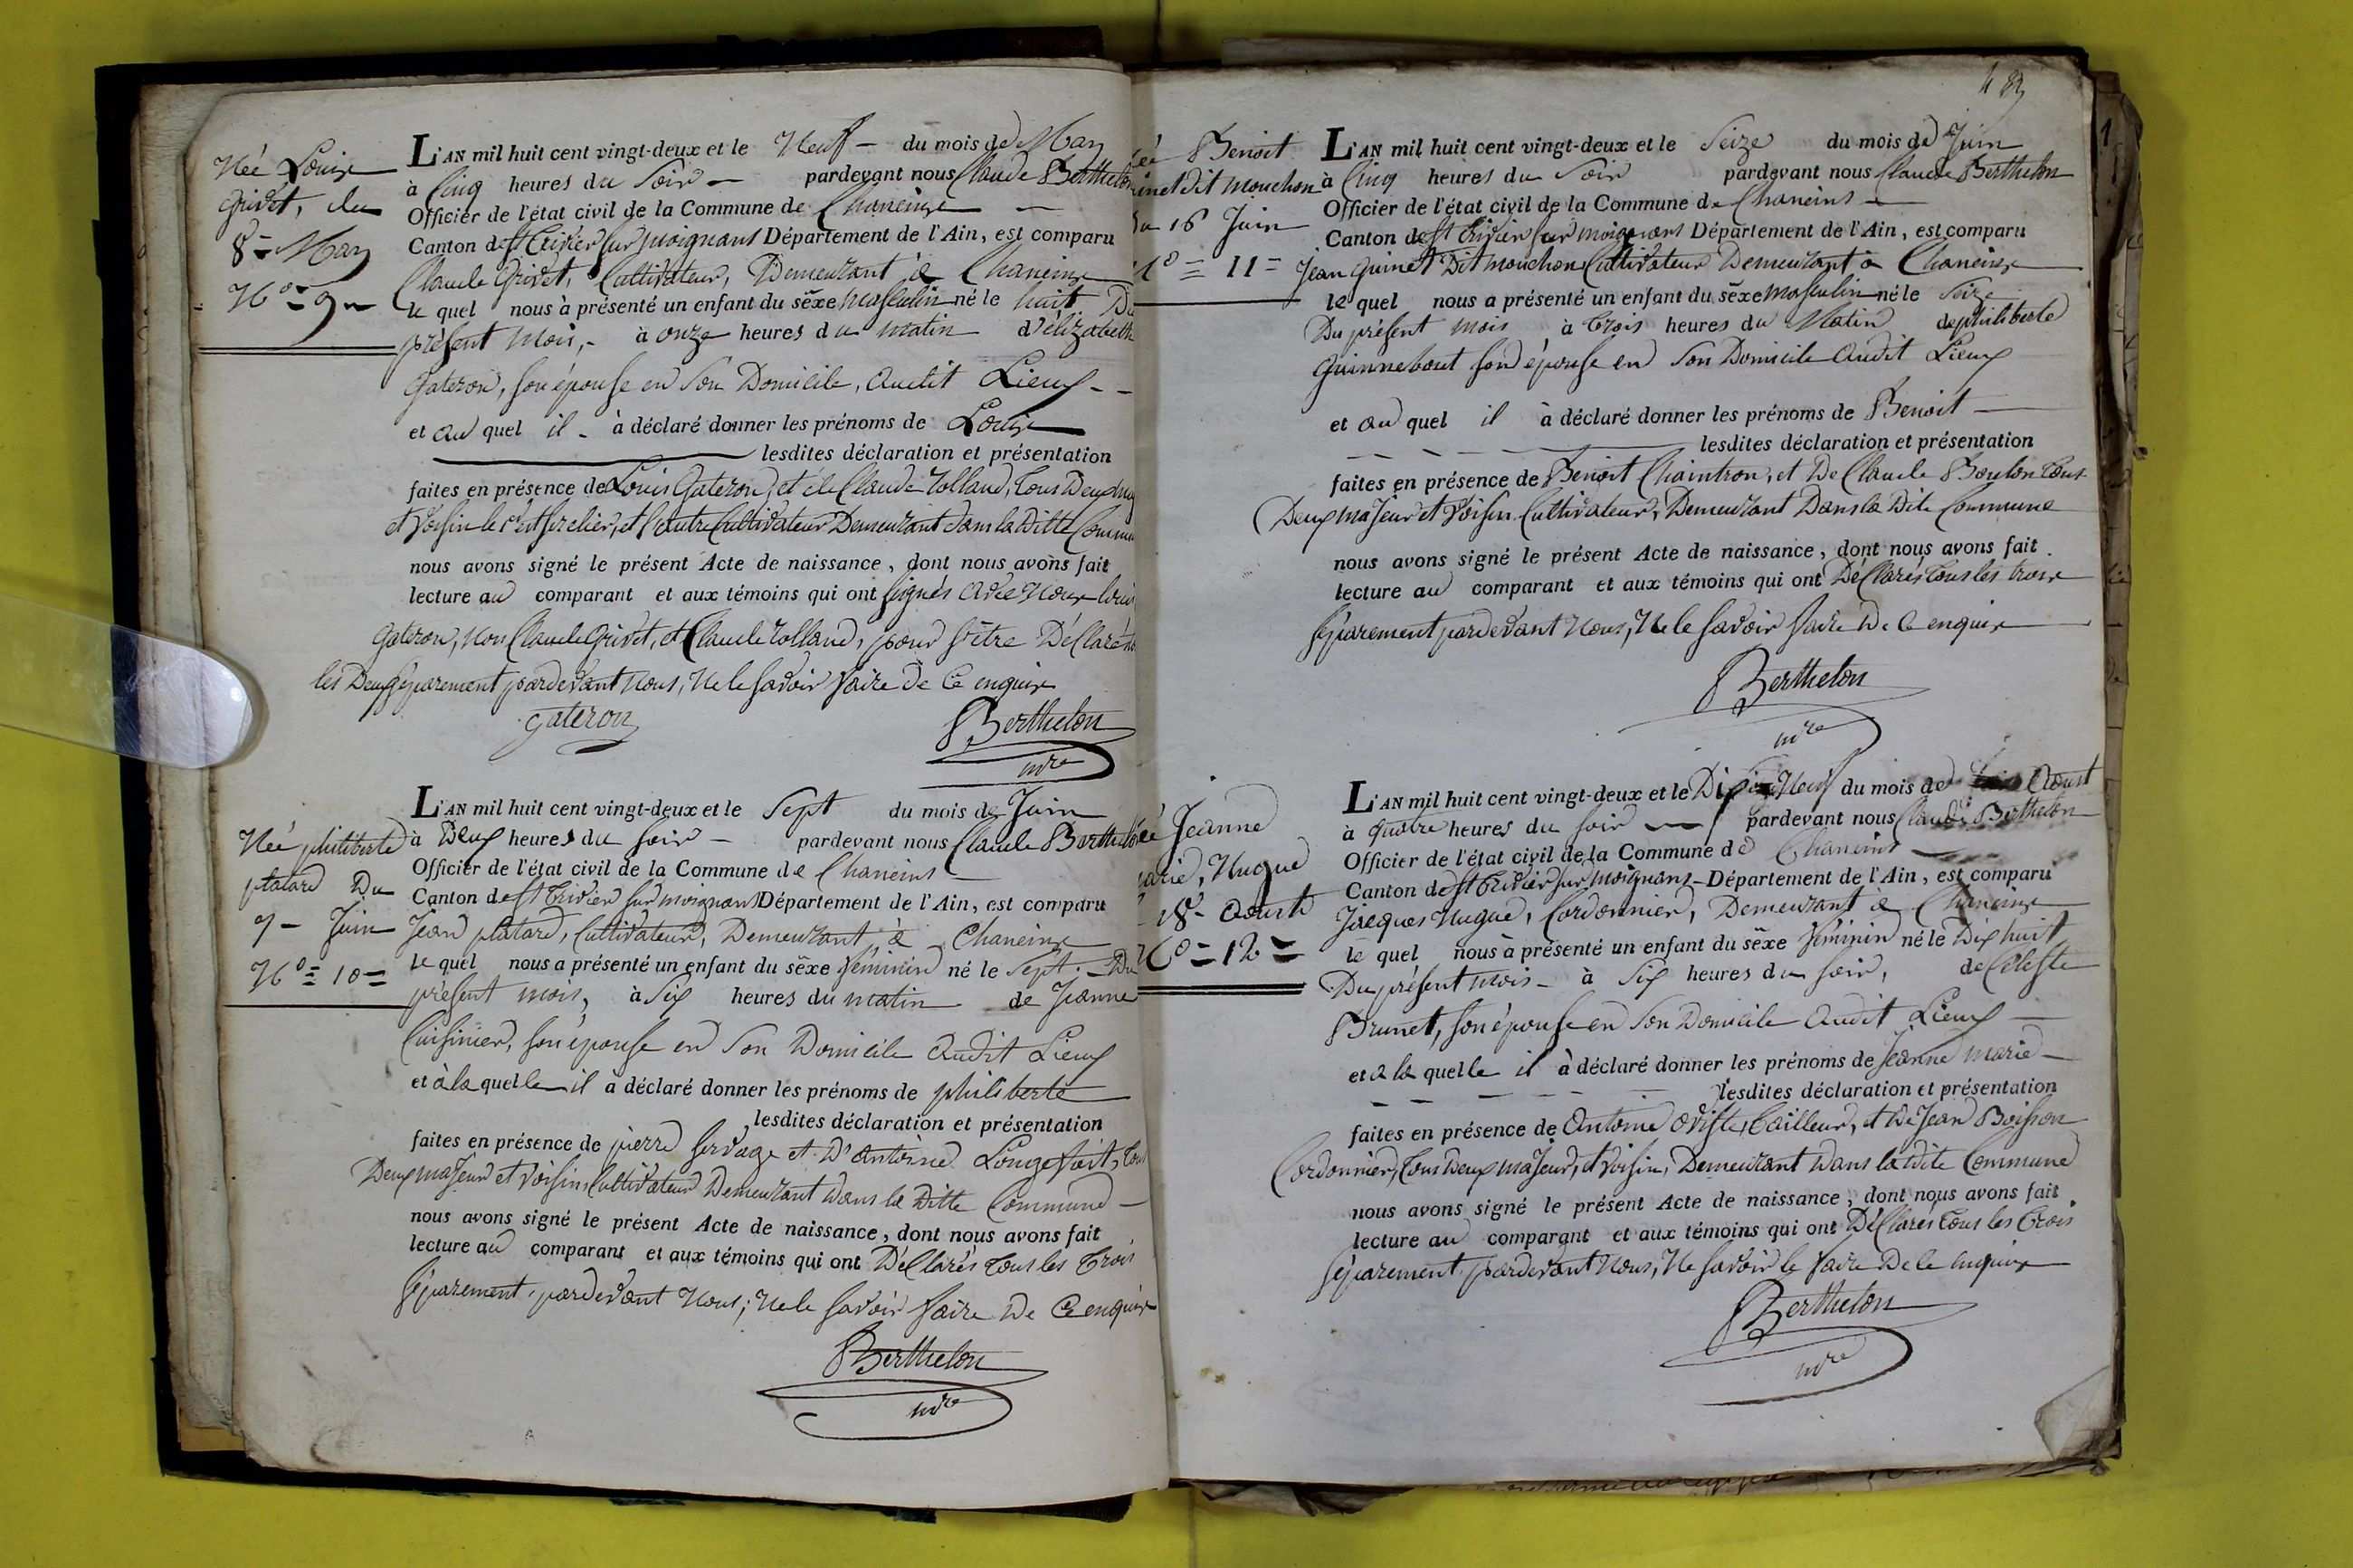 Née Louise
Grivet, du
8 = May
N° = 9
L'AN mil huit cent vingt-deux et le Neuf - du mois de May
à Cinq heures du Soir - pardevant nous Claude Berthelon
Officier de l'état civil de la Commune de Chaneins
Canton de St Trivier sur moignans Département de l'Ain, est comparu
Claude Grivet, Cultivateur, Demeurant à Chaneins
le quel nous à présenté un enfant du sèxe Masculin né le huit Du
présent Mois, - à onze heures du matin d'élizabeth
Gateron, son épouse en Son Domicile, audit Lieux - -
et au quel il - à déclaré donner les prénoms de Louise
lesdites déclaration et présentation
faites en présence de Louis Gateron, et de Claude Rolland, tous Deux
et Voisin le 1er est Cerclier, et l'autre Cultivateur Demeurant dans la ditte Commu
nous avons signé le présent Acte de naissance, dont nous avons fait
lecture au comparant et aux témoins qui ont signés avec Nous Louis
Gateron, non Claude Grivet, et Claude Rolland, pour s'être Déclaré
les Deux séparement pardevant Nous, Ne le savoir faire de Ce enquix
gateron
Berthelon
mre
Née philiberte
platard Du
7 - Juin
N° = 10 =
L'AN mil huit cent vingt-deux et le Sept du mois de Juin
à Deux heures du soir - pardevant nous Claude Berthelo
Officier de l'état civil de la Commune de Chaneins
Canton de St Trivier sur moignans Département de l'Ain, est comparu
Jean platard, Cultivateur, Demeurant à Chaneins
le quel nous a présenté un enfant du sèxe féminin né le Sept - Du
présent mois, à Six heures du matin de Jeanne
Cuisinier, son épouse en Son Domicile audit Lieux
et à la quelle il à déclaré donner les prénoms de philiberte
lesdites déclaration et présentation
faites en présence de pierre servage et D'antoine Longefait, tous
Deux majeur et voisin, Cultivateur Demeurant dans la Ditte Commune -
nous avons signé le présent Acte de naissance, dont nous avons fait
lecture au comparant et aux témoins qui ont Déclarés tous les Trois
séparement, pardevant Nous, Ne le savoir faire De Ce enquix
Berthelon
mre
Benoit
inet dit mouchon
Du 16 Juin
N° = 11 =
L'AN mil huit cent vingt-deux et le Seize du mois de Juin
à Cinq heures du Soir pardevant nous Claude Berthelon
Officier de l'état civil de la Commune de Chaneins
Canton de St Trivier sur moignans Département de l'Ain, est comparu
Jean Guinet Dit mouchon Cultivateur Demeurant à Chaneins
le quel nous a présenté un enfant du sèxe Masculin né le Seize
Du présent mois à trois heures du Matin de philiberte
Guinnebout son épouse en Son Domicile audit Lieux
et au quel il à déclaré donner les prénoms de Benoit
lesdites déclaration et présentation
faites en présence de Benoit Chaintron, et De Claude Boulon tous
Deux majeur et Voisin Cultivateur, Demeurant Dans la Dite Commune
nous avons signé le présent Acte de naissance, dont nous avons fait
lecture au comparant et aux témoins qui ont Déclarés tous les trois
séparement pardevant Nous, Ne le savoir faire De Ce enquix
Berthelon
mre
Jeanne
arie, Hugue
18 - Aoust
N° = 12 =
L'AN mil huit cent vingt-deux et le Dix Neuf du mois de Aoust
à quatre heures du soir pardevant nous Claude Berthelon
Officier de l'état civil de la Commune de Chaneins
Canton de St Trivier sur Moignans - Département de l'Ain, est comparu
Jacques Hugue, Cordonnier, Demeurant à Chaneins
le quel nous à présenté un enfant du sèxe féminin né le Dix huit
Du présent mois - à Six heures du soir, de Celeste
Brunet, son épouse en Son Domicile audit Lieux
et a la quelle il à déclaré donner les prénoms de Jeanne Marie -
lesdites déclaration et présentation
faites en présence de Antoine oviste, tailleur, et De Jean Boisson
Cordonnier, tous Deux majeur, et voisin, Demeurant dans la dite Commune
nous avons signé le présent Acte de naissance, dont nous avons fait
lecture au comparant et aux témoins qui ont Déclarés tous les Trois
séparement pardevant Nous, Ne savoir le faire De Ce enquix
Berthelon
mre